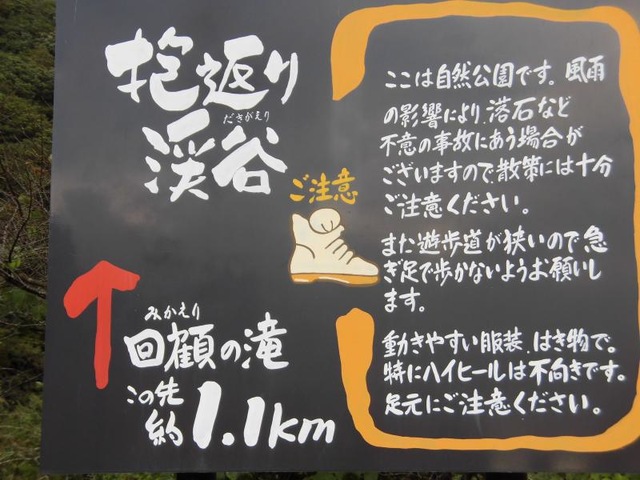 抱返り
だきがえり
渓谷
ご注意
みかえり
回顧の滝
この先
約1.1km
ここは自然公園です。風雨
の影響により、落石など
不意の事故にあう場合が
ございますので、散策には十分
ご注意ください。
また遊歩道が狭いので急
ぎ足で歩かないようお願いし
ます。
動きやすい服装、はき物で。
特にハイヒールは不向きです。
足元にご注意ください。